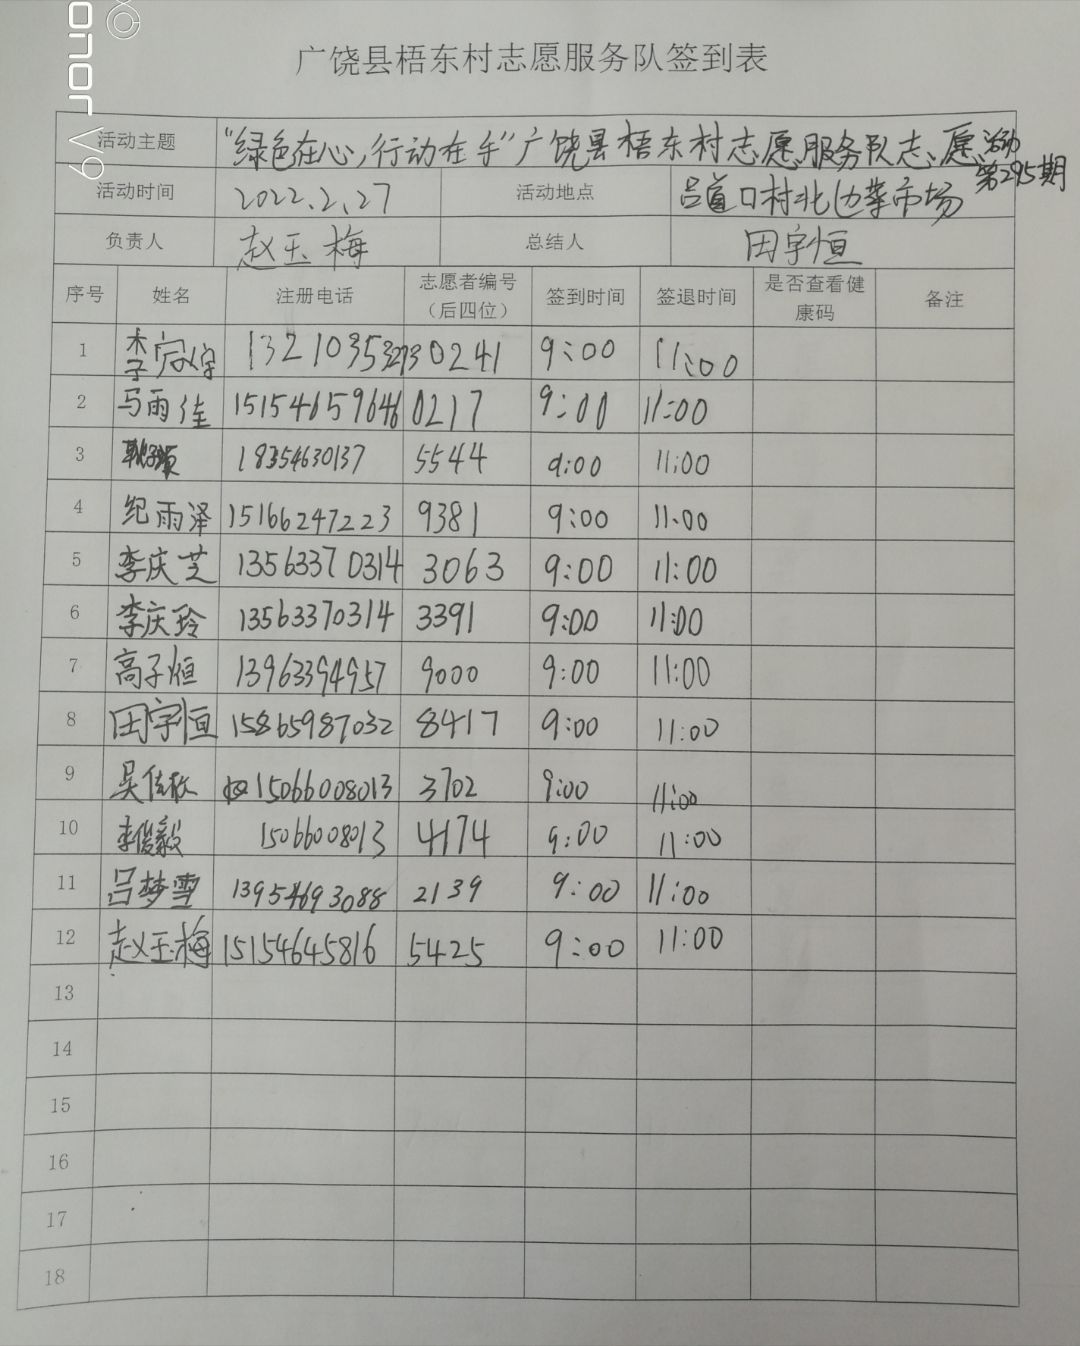 honor V9
广饶县梧东村志愿服务队签到表
活动主题 “绿色在心,行动在手”广饶县梧东村志愿服务队志愿活动
第295期
活动时间 2022.2.27 活动地点 吕道口村北边菜市场
负责人 赵玉梅 总结人 田宇恒
序号 姓名 注册电话 志愿者编号（后四位） 签到时间 签退时间 是否查看健康码 备注
1 李 0241 9:00 11:00
2 马雨佳 15154659646 0217 9:00 11:00
3 18354630137 5544 9:00 11:00
4 纪雨泽 15166247223 9381 9:00 11:00
5 李庆芝 13563370314 3063 9:00 11:00
6 李庆玲 13563370314 3391 9:00 11:00
7 高子恒 13963394957 9000 9:00 11:00
8 田宇恒 15865987032 8417 9:00 11:00
9 吴佳 15066008013 3702 9:00 11:00
10 李俊毅 15066008013 4174 9:00 11:00
11 吕梦雪 13954693088 2139 9:00 11:00
12 赵玉梅 15154645816 5425 9:00 11:00
13
14
15
16
17
18